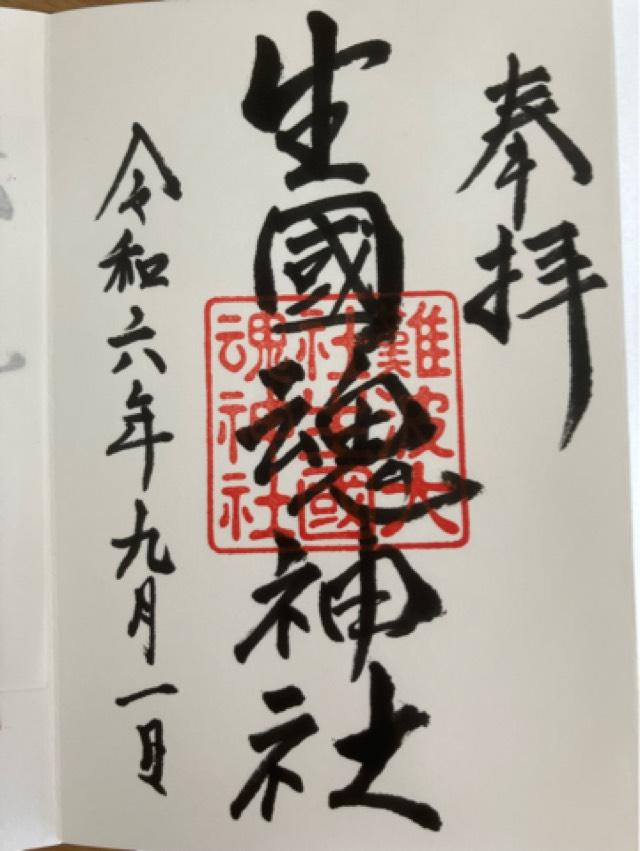 奉拝
生國魂神社
難波大
社生國
魂神社
令和六年九月一日